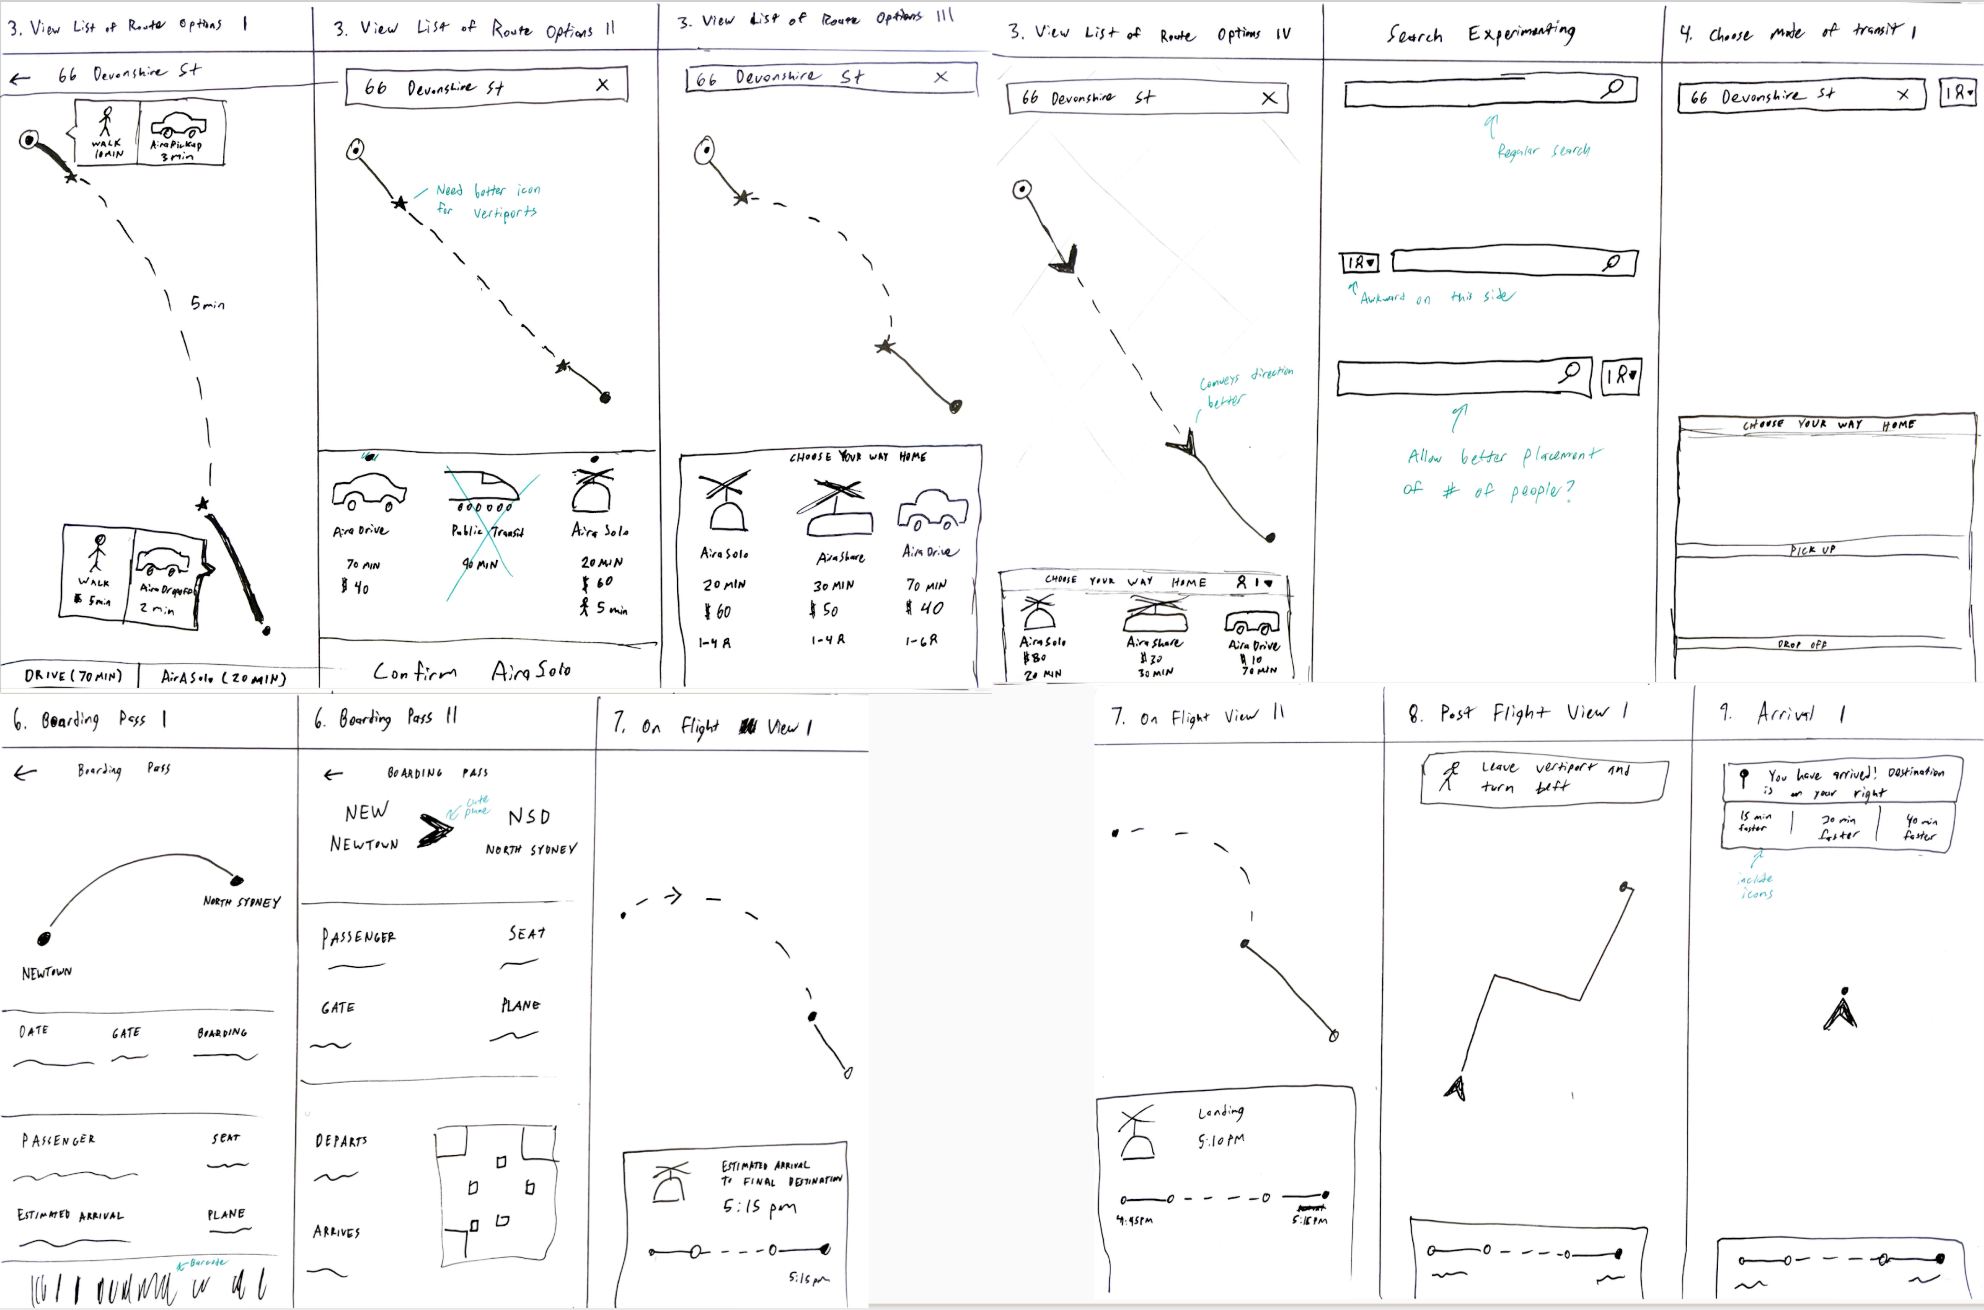 3. View List of Route Options I
← 66 Devonshire St
WALK
10MIN
Aira Pickup
3 min
5 min
WALK
5min
Aira Dropoff
2 min
DRIVE (70MIN)
AirASolo (20 MIN)
3. View List of Route Options II
66 Devonshire St X
Need better icon
for vertiports
Aira Drive
70 MIN
$ 40
Public Transit
90 MIN
Aira Solo
20 MIN
$ 60
5 min
Confirm AiraSolo
3. View List of Route Options III
66 Devonshire St X
CHOOSE YOUR WAY HOME
AiraSolo
20 MIN
$ 60
1-4
AiraShare
30 MIN
$ 50
1-4
Aira Drive
70 MIN
$ 40
1-6
3. View List of Route Options IV
66 Devonshire St X
Conveys direction
better
CHOOSE YOUR WAY HOME 1
AiraSolo
$80
20 MIN
AiraShare
$30
30MIN
Aira Drive
$10
70MIN
Search Experimenting
Regular search
1
Awkward on this side
1
Allow better placement
of # of people?
4. Choose mode of transit I
66 Devonshire St X
1
CHOOSE YOUR WAY HOME
PICK UP
DROP OFF
6. Boarding Pass I
← Boarding Pass
NORTH SYDNEY
NEWTOWN
DATE GATE BOARDING
PASSENGER SEAT
ESTIMATED ARRIVAL PLANE
Barcode
6. Boarding Pass II
← BOARDING PASS
NEW
NEWTOWN
cute
plane
NSD
NORTH SYDNEY
PASSENGER SEAT
GATE PLANE
DEPARTS
ARRIVES
7. On Flight View I
ESTIMATED ARRIVAL
TO FINAL DESTINATION
5:15 pm
5:15pm
7. On Flight View II
Landing
5:10PM
4:45PM
5:15PM
8. Post Flight View I
Leave vertiport and
turn left
9. Arrival I
You have arrived! Destination
is on your right
15 min
faster
20 min
faster
40 min
faster
include
icons